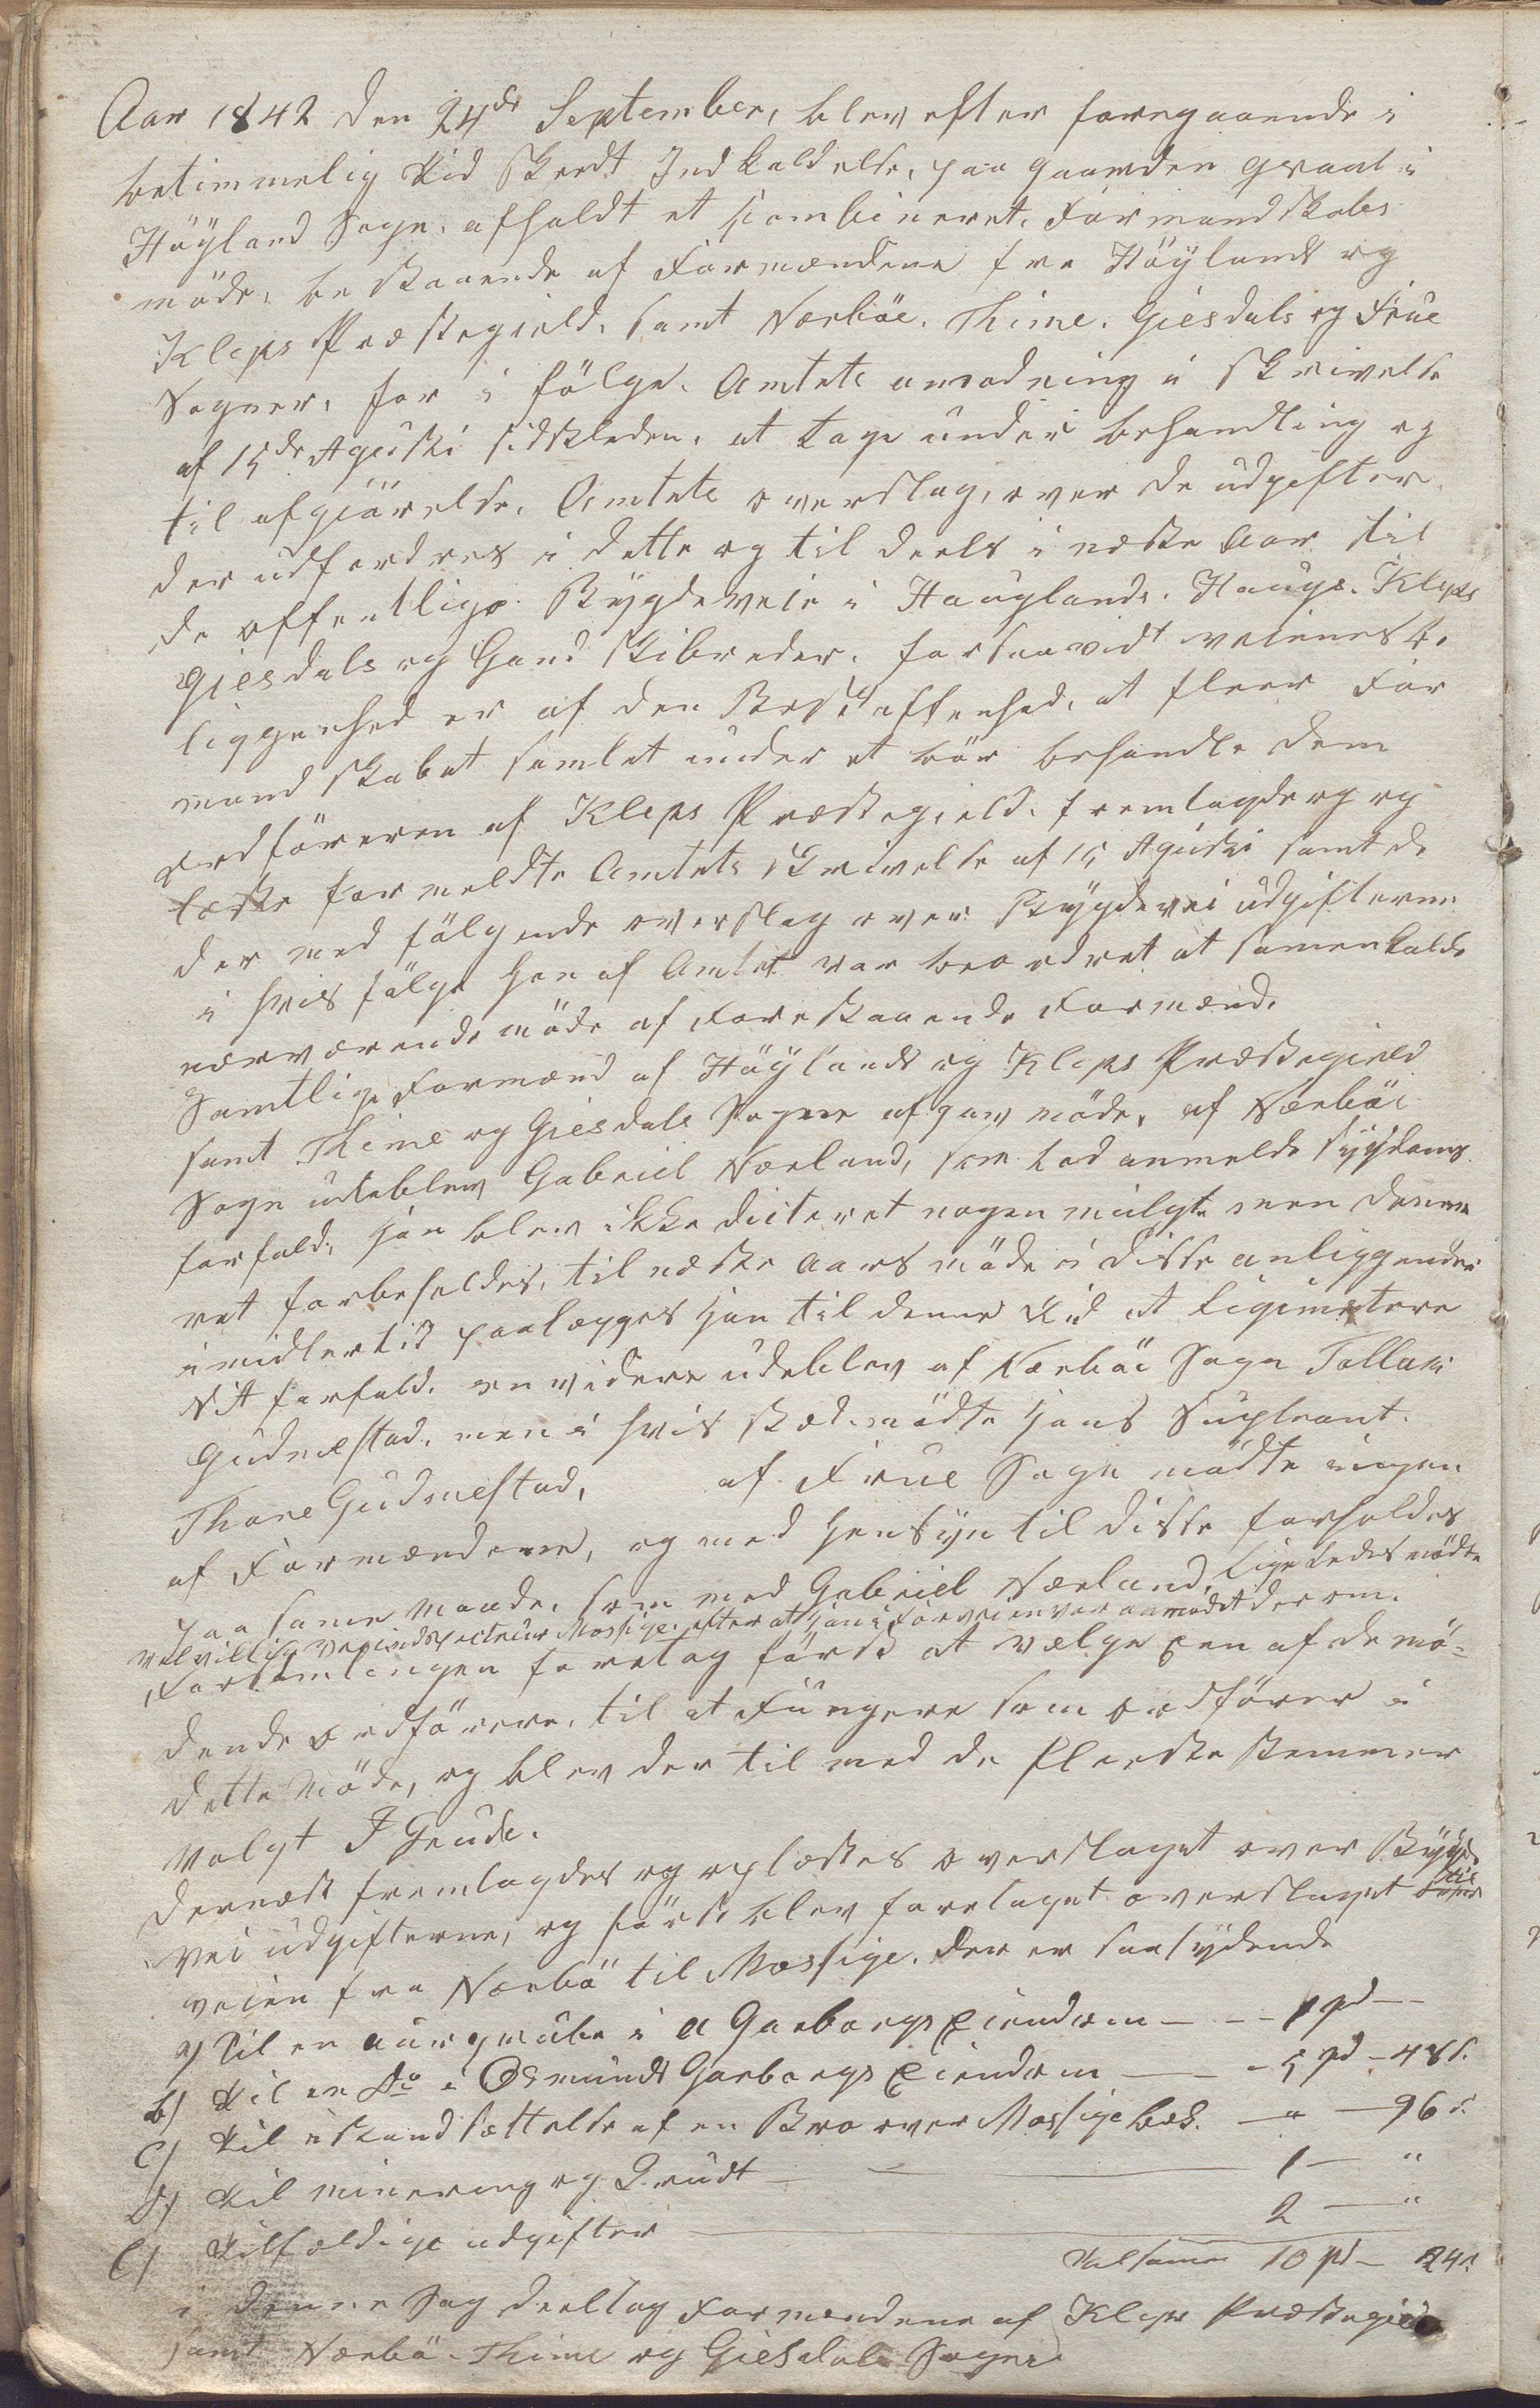 Aar 1842 den 24de September, blev efter foregaaende i
betimmelig Tid skeedt Indkaldelse, paa gaarden graat i
Höyland Sogn, afholdt et kombineret Formandskabs
möde, bestaaende af Formændene fra Höylands og
Kleps Præstegield, samt Nærböe, Thime, Giesdals og Frue
Sogner, for i fölge Amtets anmodning i skrivelse
af 15de Agusti sidstleden, at tage under behandling og
til afgiörelse, Amtets overslag, over de udgifter
der udfordres i dette og til deels i neste Aar til
de offentlige Bygdeveie i Hauglands, Haugs, Kleps
Giesdals og Gand Skibreder, forsaavidt veienes be
liggenhed er af den Beskaffenhed, at fleer For
mandskabet samlet under et bör behandle dem
ordföreren af Kleps Præstegield, fremlagde og og
læste formeldte Amtets skrivelse af 15 Agusti samt de
der med fölgende overslag over Bygdevei udgifterne
i hvis fölge han af Amtet var beordret at samenkalde
nærværende möde af Forestaaende Formænd.
Samtlige Formænd af Höylands og Kleps Præstegield
samt Thime og Giesdals Sogner afgav möde, af Nærböe
Sogn udeblev Gabriel Nærland, som had anmeldt sygdoms
forfald, han blev ikke dicteret nogen mulgt men denne
ret forbeholdes, til næste Aars möde i disse anliggender
imidlertid paalægges han til denne Tid at ligimetere
sit forfald. en videre udeblev af Nærböe Sogn Tollak
Gudmestad, men i hvis sted mödte hans Supleant
Thore Gudmestad, af Frue Sogn mödte ingen
af Formændene, og med hensyn til disse forholdes
paa samme Maade, som med Gabriel Nærland, Ligeledes mödte
velvillig veiindspecteur Mossige, efter at han i Forveien var anmodet derom.
Forsamlingen foretog först at vælge een af de mö-
dende ordförere, til at Fungere som ordförer i
dette Möde, og blev der til med de fleeste stemmer
valgt J Grude.
dernest fremlagdes og oplæstes overslaget over Bygde
vei udgifterne, og först blev foretaget overslaget til
veien fra Nærbö til Mossige, der er saalydende
a) Til en aurgrube i A Garborgs Eiendom - - - 1 spd -
b) Til en do i Osmund Garborgs Eiendom - - 5 spd - 48 s.
c) Til istandsættelse af en Bro over Mossige bek. - " - 96 s.
d) Til minering og Krudt - 1 - "
e) Tilfældige udgifter - 2 - "
Tilsamen 10 spd - 24 s.
i denne Sag deeltog Formændene af Kleps Præstegield
samt Nærbö, Thime og Giesdals Sogner